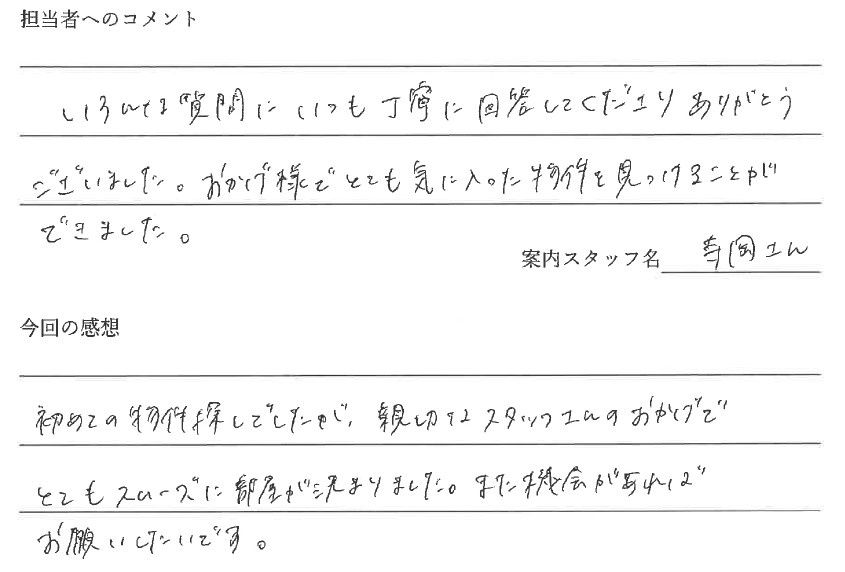 担当者へのコメント
いろんな質問にいつも丁寧に回答してくださりありがとう
ございました。おかげ様でとても気に入った物件を見つけることが
できました。
案内スタッフ名 寺岡さん
今回の感想
初めての物件探しでしたが、親切なスタッフさんのおかげで
とてもスムーズに部屋が決まりました。また機会があれば
お願いしたいです。